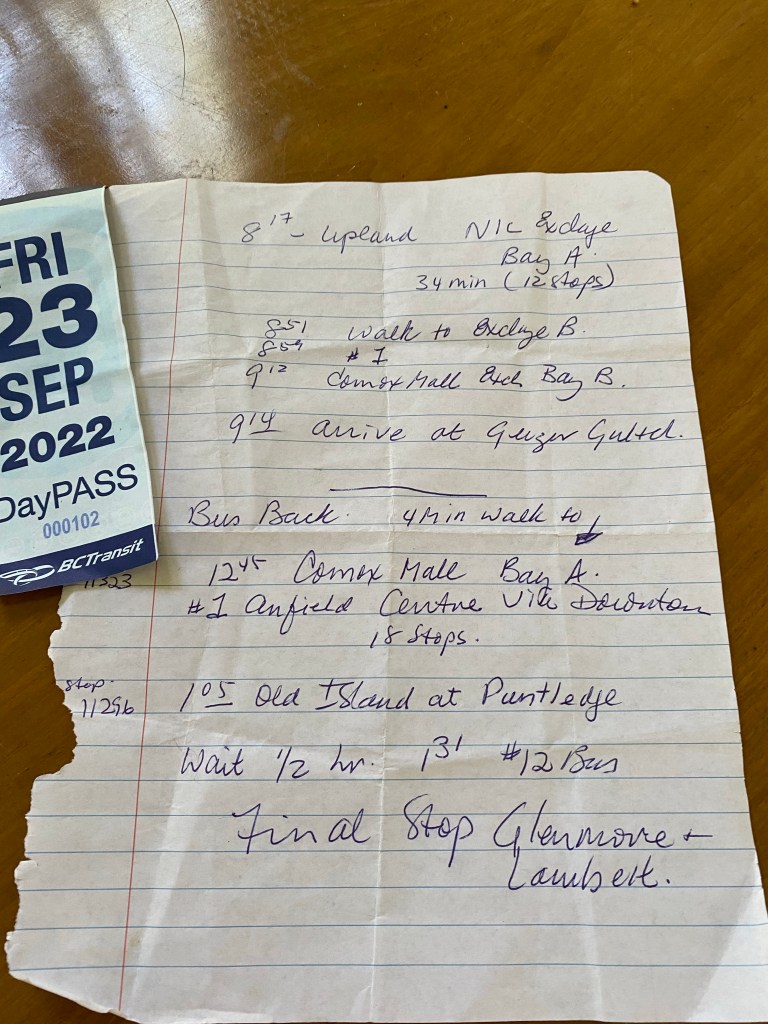 FRI
23
SEP
2022
DayPASS
000102
BCTransit
8 17 - Upland NIC Exchge
Bay A.
34 min (12 stops)
8 51 walk to Exchge B.
8 59 # 1
9 12 Comox Mall Exch Bay B.
9 14 arrive at
Bus Back. 4 Min walk to
11323
12 45 Comox Mall Bay A.
#1 Anfield Centre Via Downton
18 stops.
stop.
11296
1 05 Old Island at Puntledge
Wait 1/2 hr. 1 31 #12 Bus
Final Stop Glenmore +
Lambert.